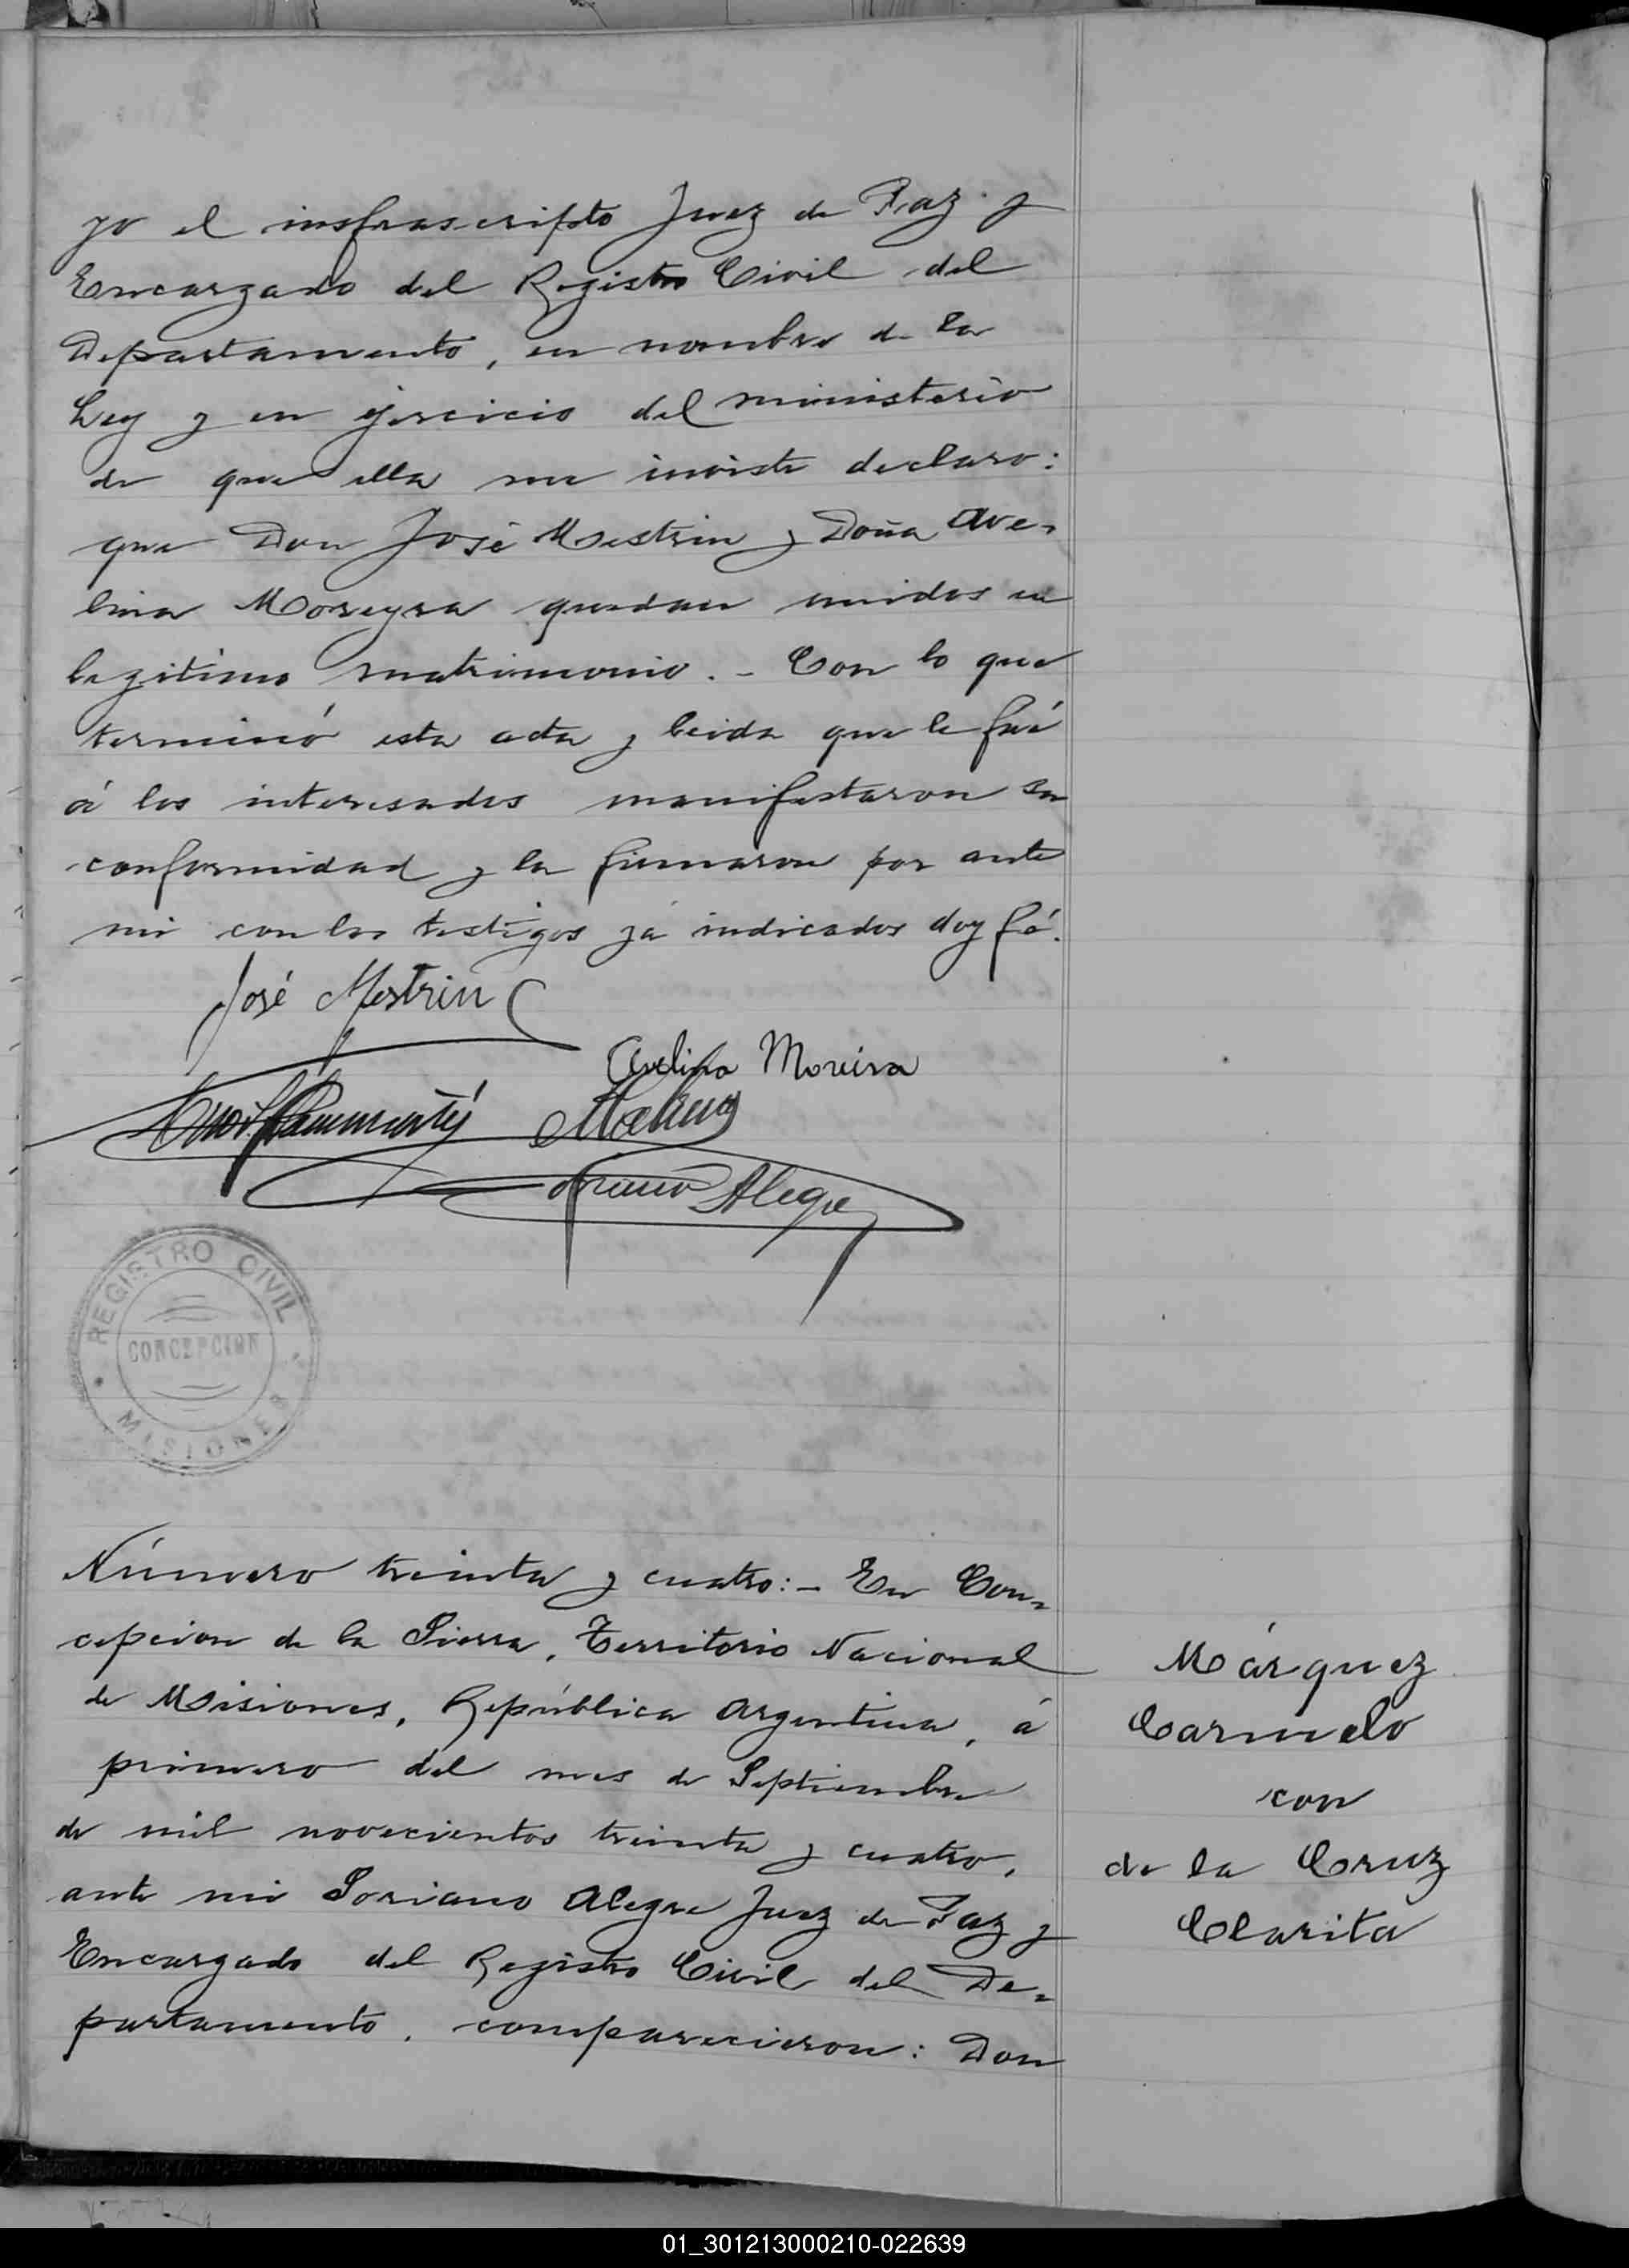 yo el insfrascripto Juez de Paz y
Encargado del Registro Civil del
Departamento, en nombre de la
Ley y en ejercicio del ministerio
de que ella me inviste declaro:
que Don José Mestrin y Doña Ave-
lina Moreyra quedan unidos en
legitimo matrimonio. - Con lo que
terminó esta acta y leida que le fué
á los interesados manifestaron su
conformidad y la firmaron por ante
mi con los testigos ya indicados doy fé.
José Mestrin
Avelina Moreira
Alegre
REGISTRO CIVIL
CONCEPCION
MISIONES
Número treinta y cuatro: - En Con-
cepcion de la Sierra, Territorio Nacional
de Misiones, República Argentina, á
primero del mes de Septiembre
de mil novecientos treinta y cuatro,
ante mi Soriano Alegre Juez de Paz y
Encargado del Registro Civil del De-
partamento, comparecieron: Don
Márquez
Carmelo
con
de la Cruz
Clarita
01_301213000210-022639